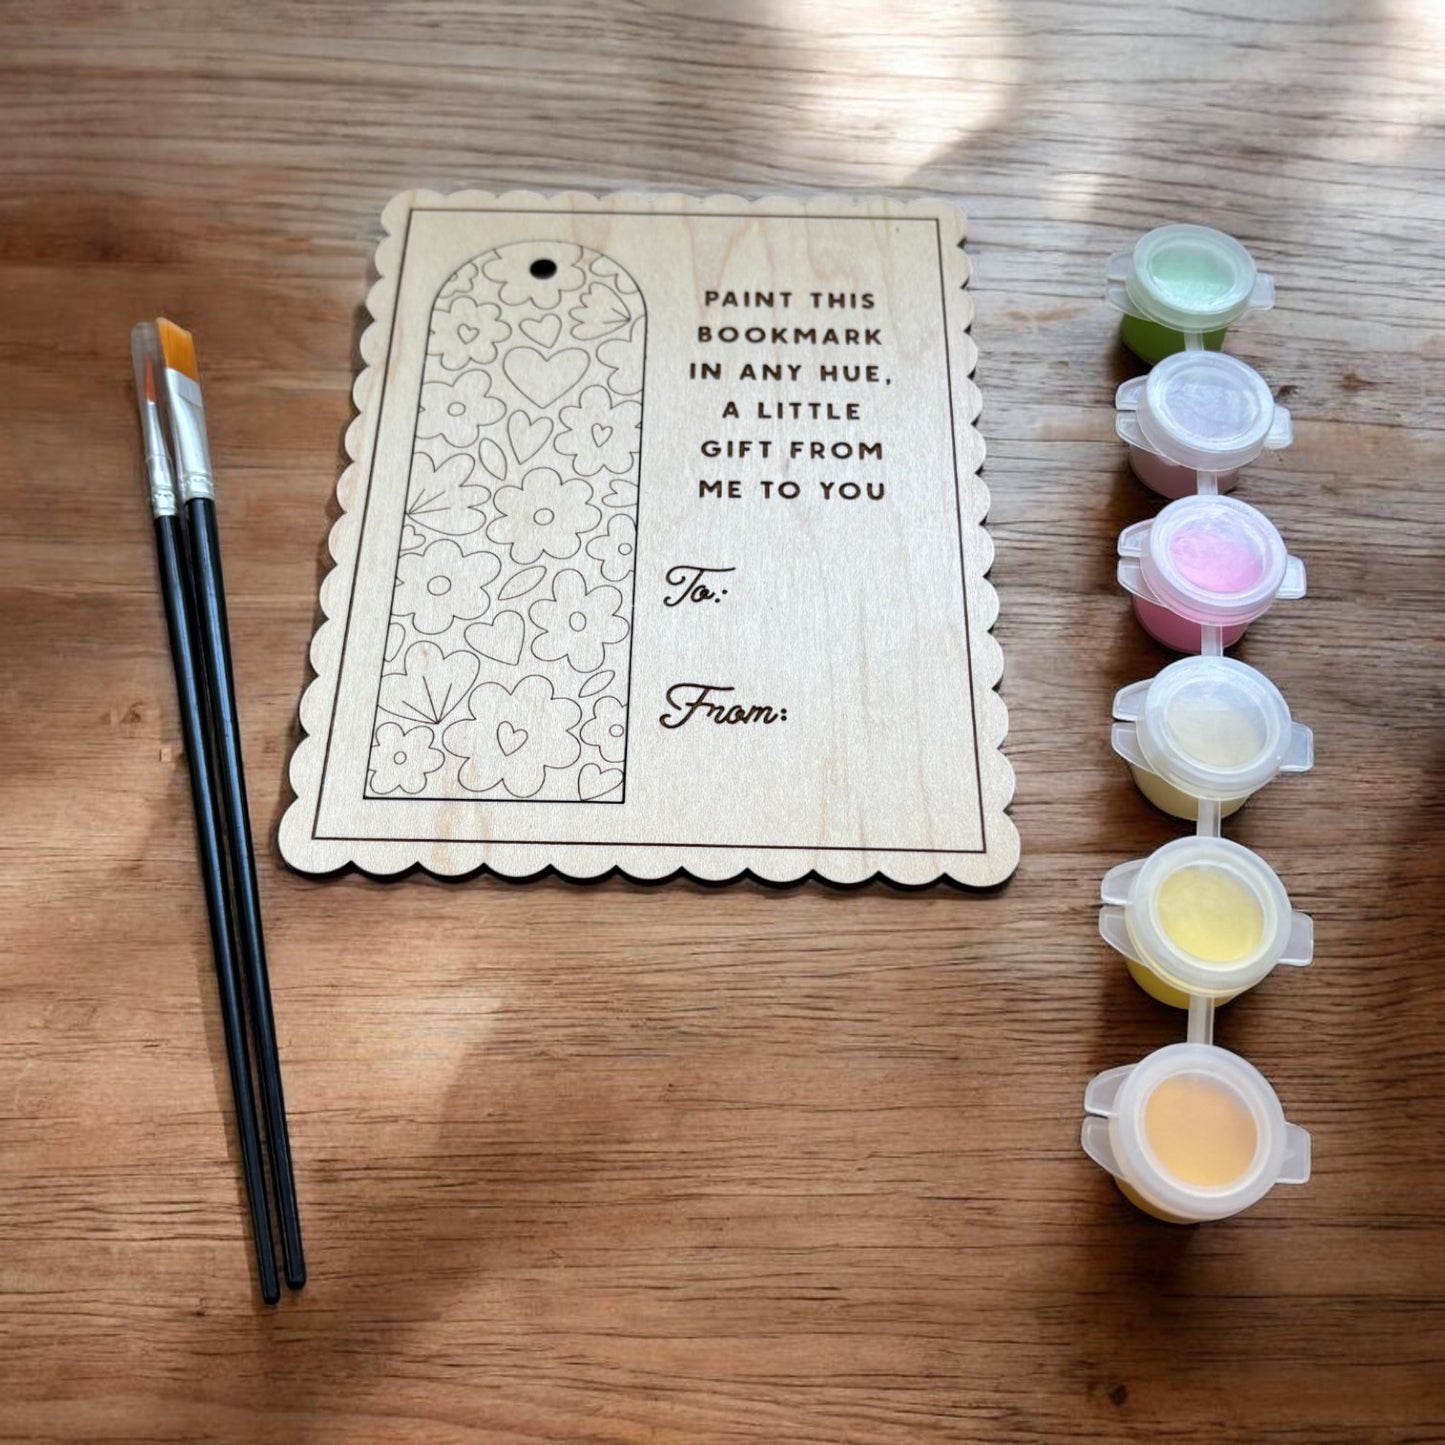 PAINT THIS
BOOKMARK
IN ANY HUE,
A LITTLE
GIFT FROM
ME TO YOU
To:
From: